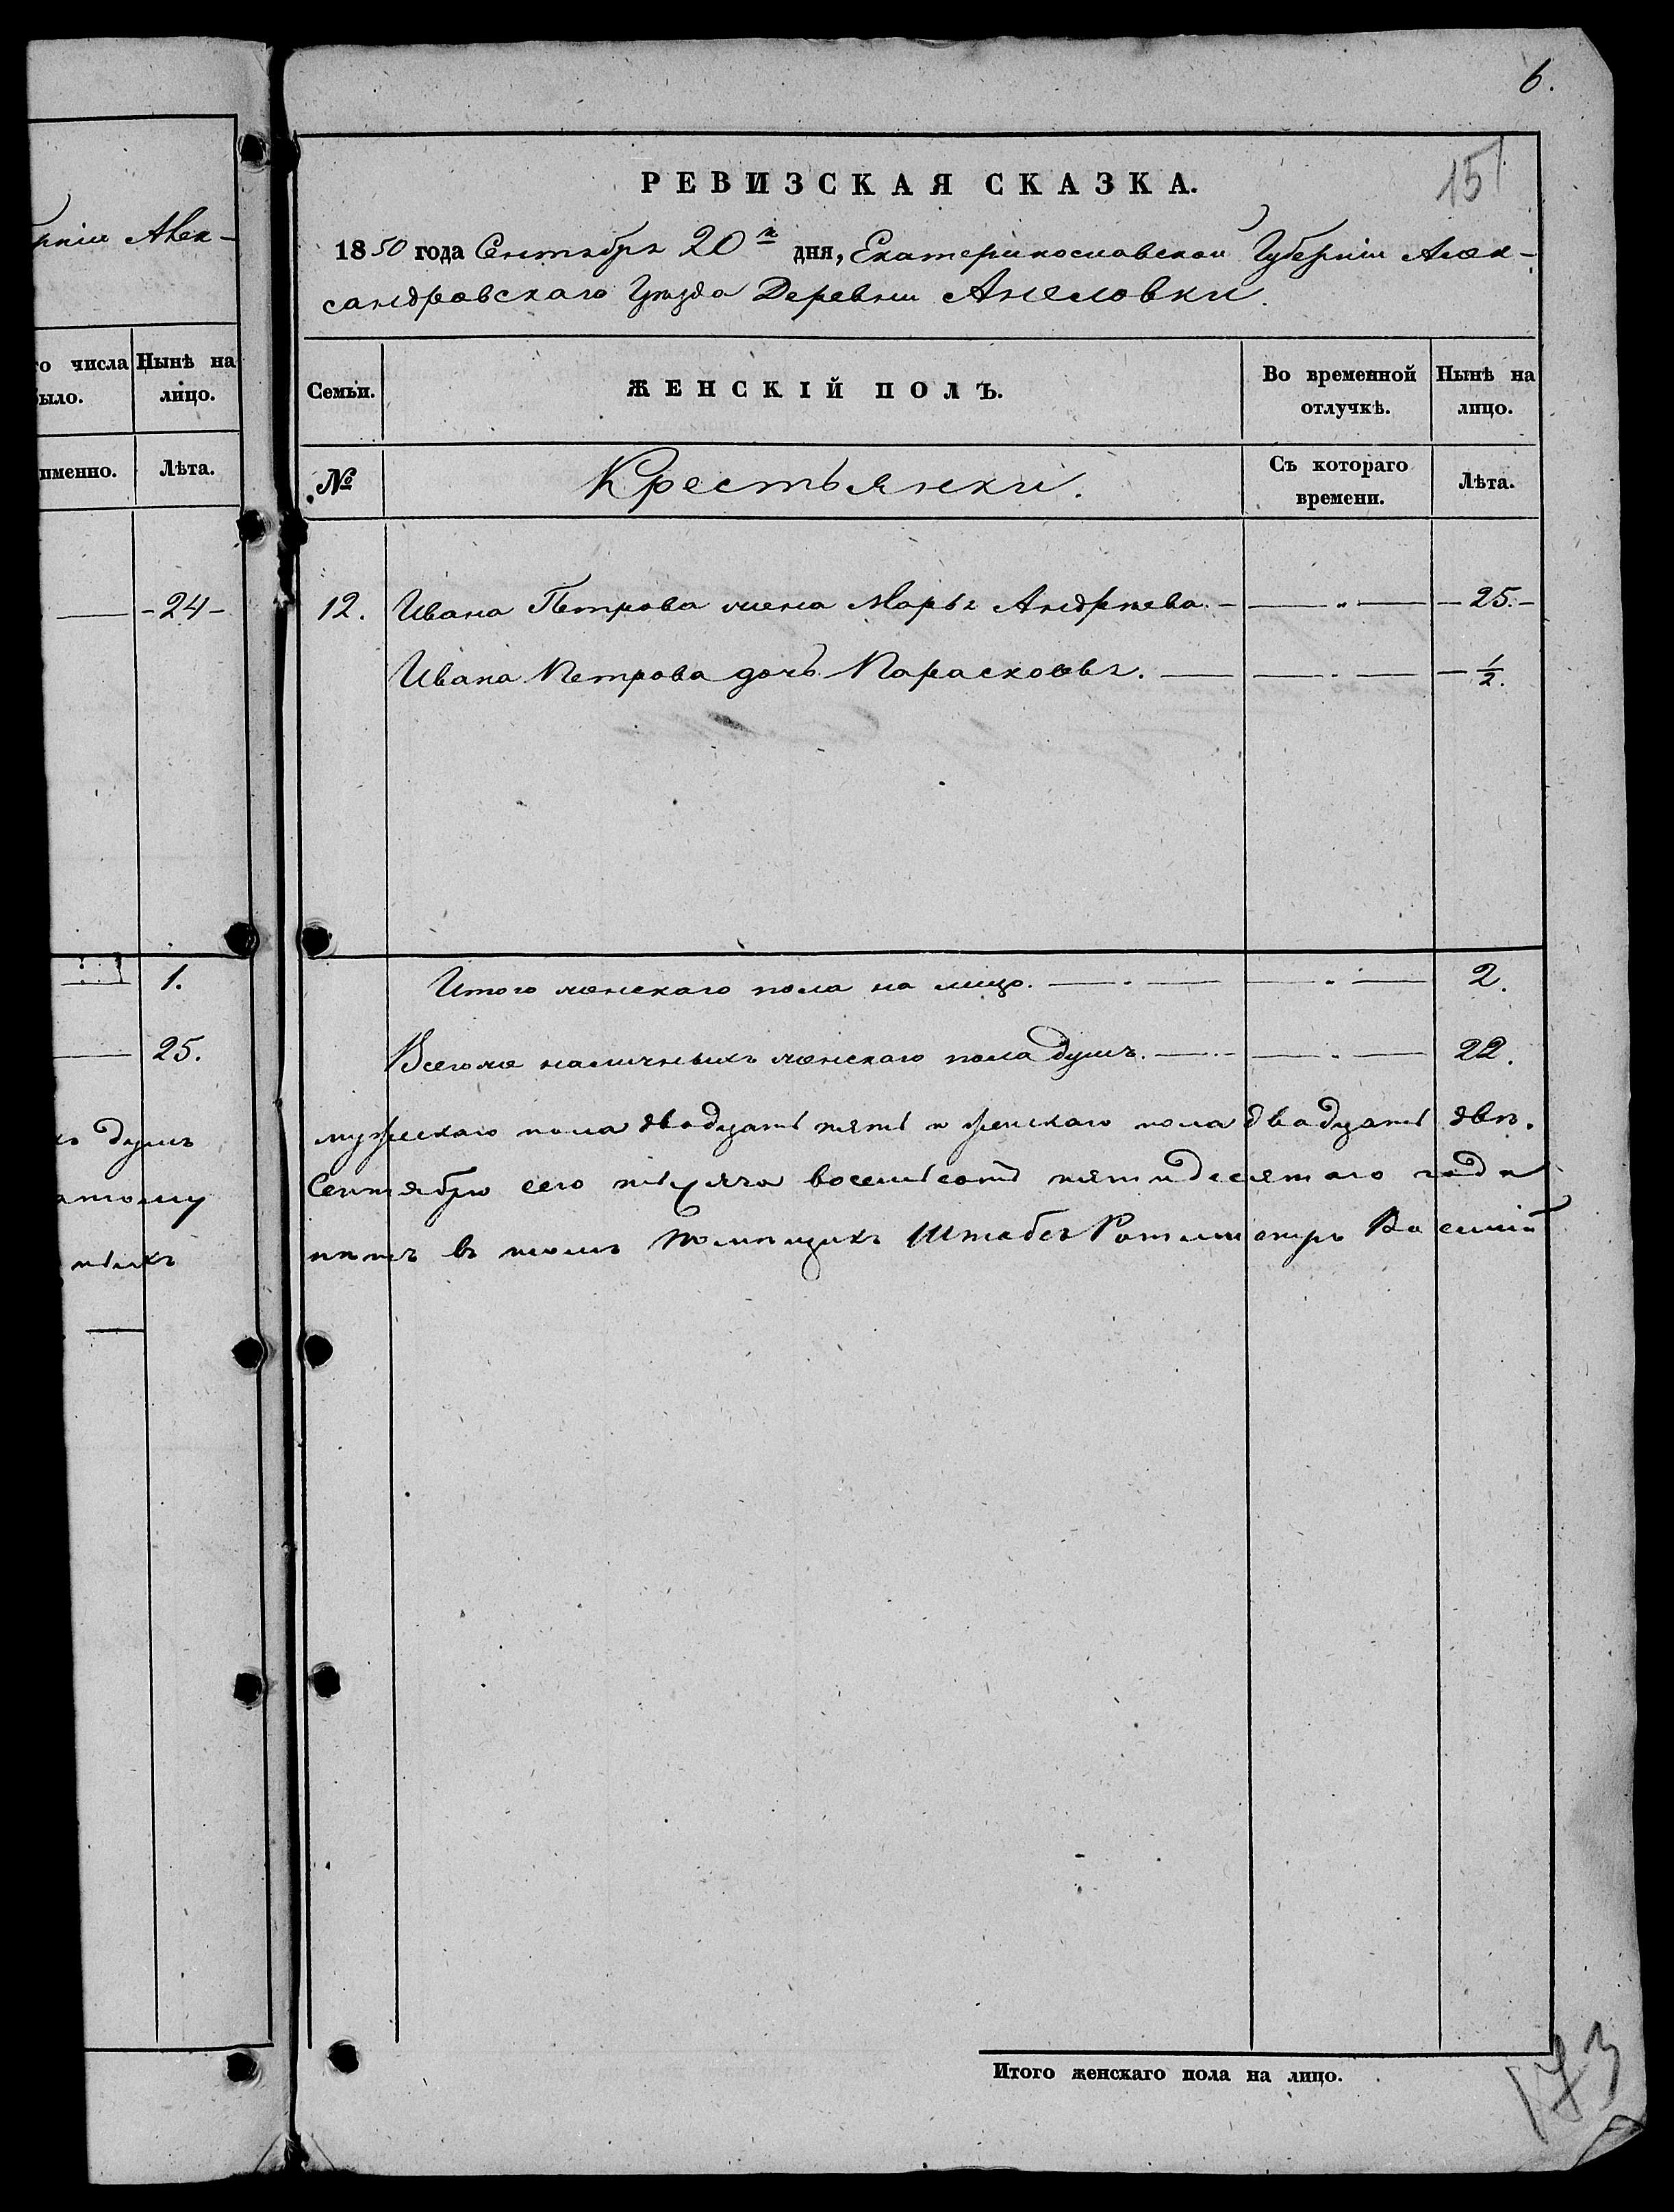 6.
151
РЕВИЗСКАЯ СКАЗКА.
1850 года Сентября 20 го дня, Екатеринославской Губерніи Алек-
сандровскаго Уѣзда Деревни Анеловки.
рніи Алек-
го числа
было.
Нынѣ на
лицо.
именно.
Лѣта.
Семьи.
ЖЕНСКІЙ ПОЛЪ.
Во временной
отлучкѣ.
Нынѣ на
лицо.
№
Крестьянки.
Съ котораго
времени.
Лѣта.
-24-
12. Ивана Петрова жена Марья Андреева. - 25.-
Ивана Петрова дочь Парасковья. - 1/2.
1.
Итого женскаго пола на лицо. 2.
25.
Всегоже наличныхъ женскаго пола душъ. 22.
душъ
мужескаго пола двадцать пять и женскаго пола двадцать двѣ.
Сентября сего тысяча восемьсотъ пятидесятаго года
въ томъ Помѣщикъ Штабсъ Ротмистръ Василий
Итого женскаго пола на лицо.
173